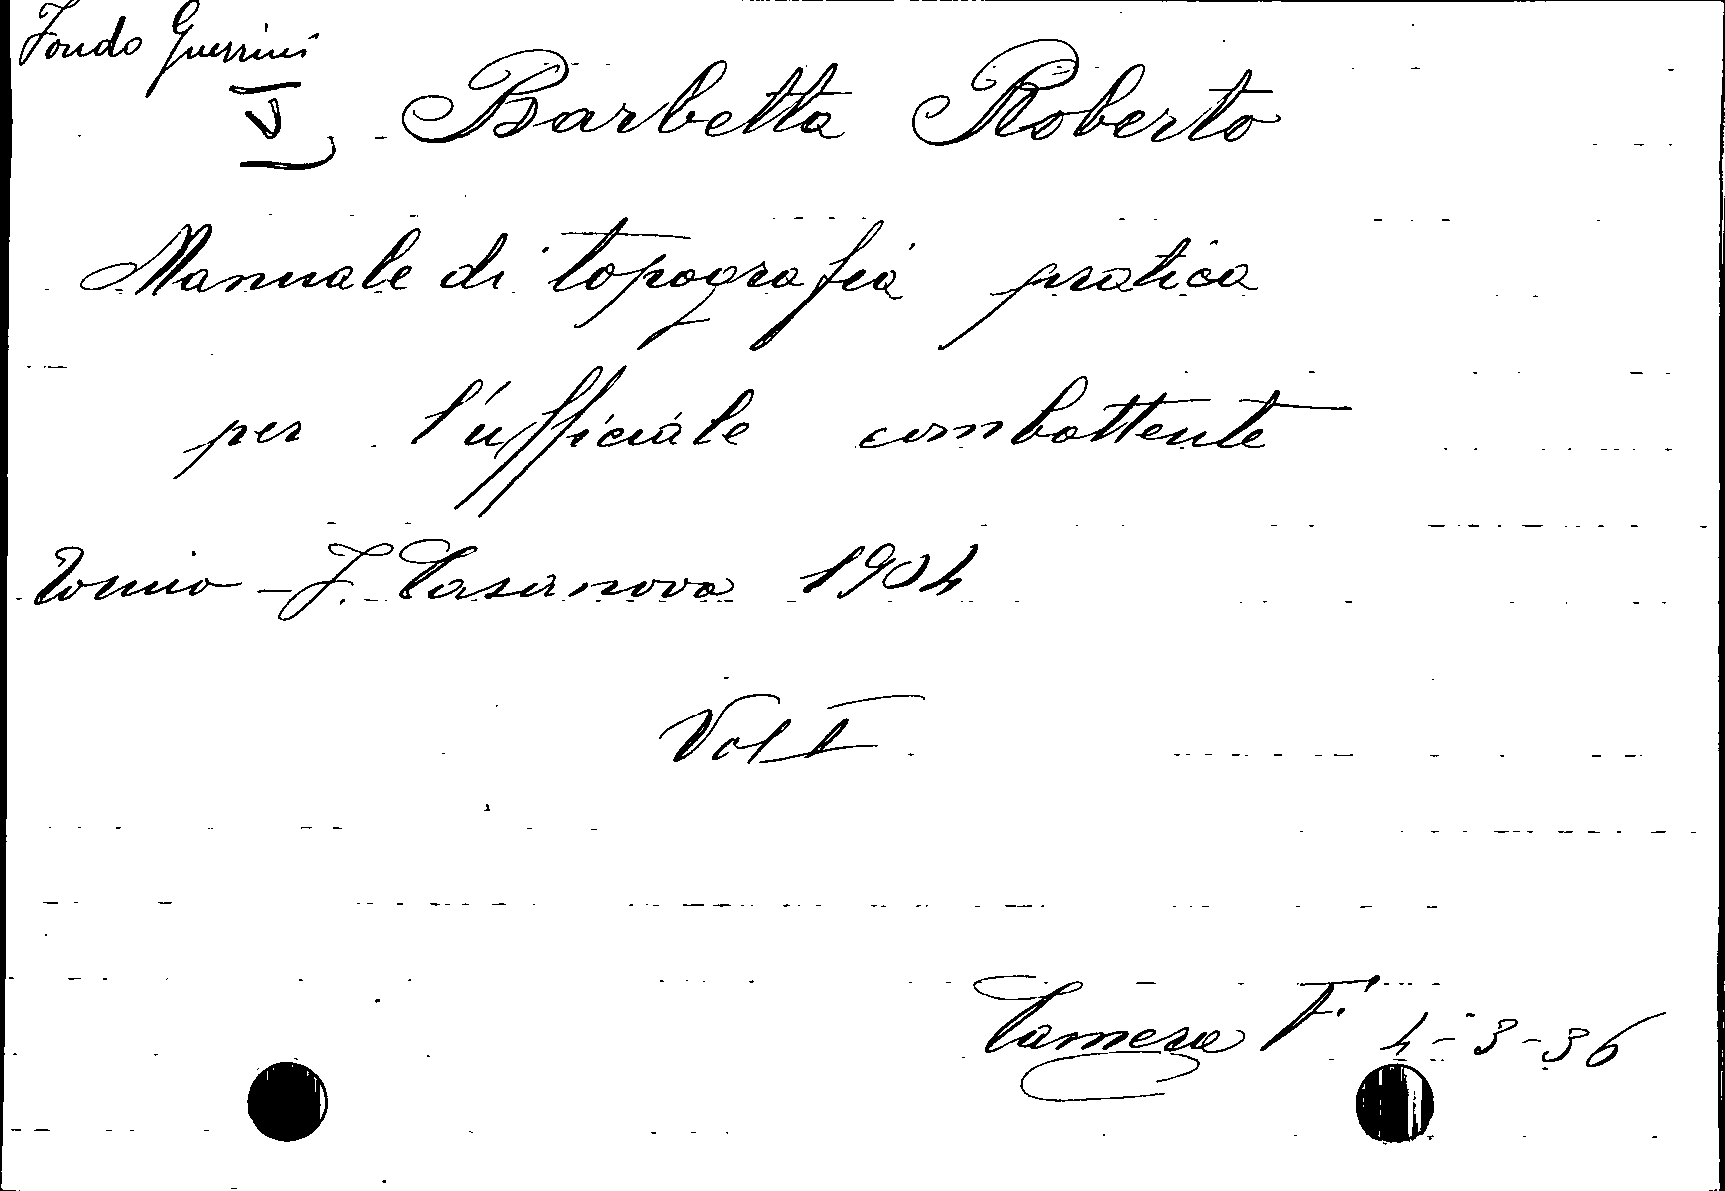 Fondo Guerrini
Barbetta Roberto
Manuale di topografia pratica
per l'ufficiale combattente
Torino - F. Casanova 1904
Vol I
Camera F. 4-3-36